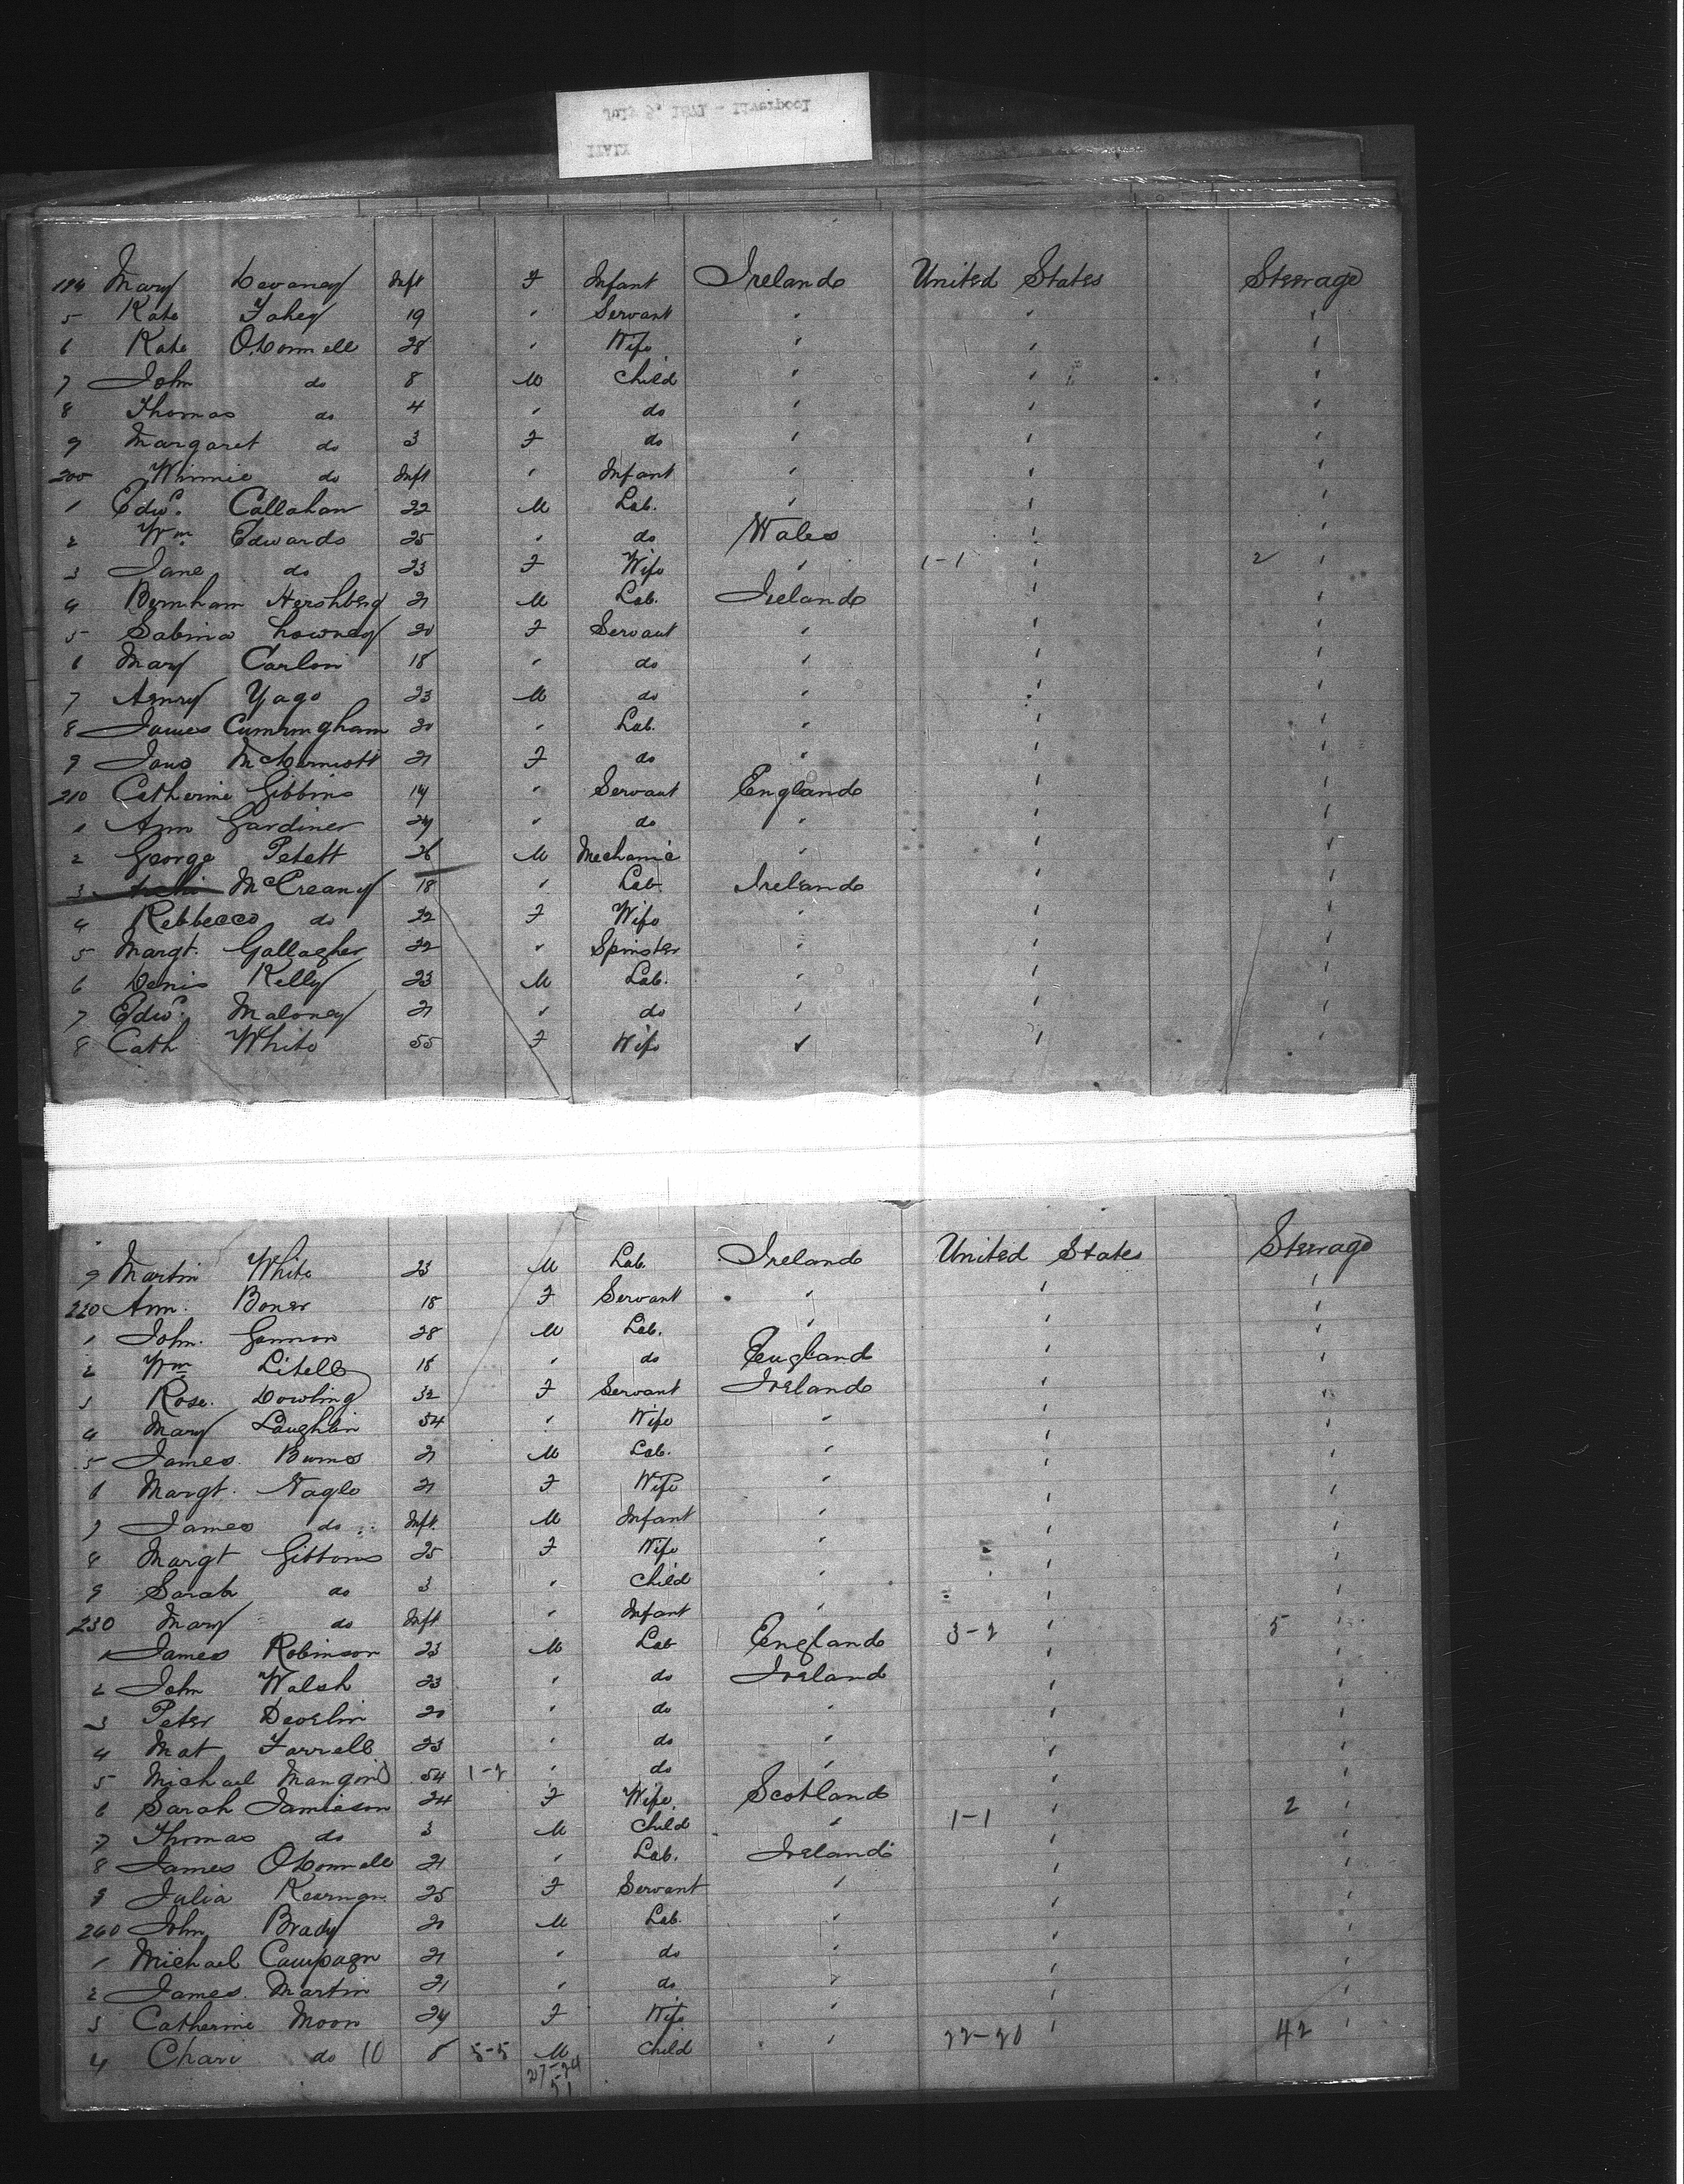 July 6, 1871 - Liverpool
194 Mary Devaney Inft F Infant Ireland United States Steerage
5 Kate Fahey 19 " Servant " " "
6 Kate O'Connell 28 " Wife " " "
7 John do 8 M Child " " "
8 Thomas do 4 " do " " "
9 Margaret do 3 F do " " "
200 Winnie do Inft " Infant " " "
1 Edwd. Callahan 22 M Lab. " " "
2 Wm. Edwards 25 " do Wales " "
3 Jane do 23 F Wife " 1-1 " 2 "
4 Bernham Hershberg 21 M Lab. Ireland " "
5 Sabina Lowney 20 F Servant " " "
6 Mary Carlon 18 " do " " "
7 Henry Yago 23 M do " " "
8 James Cunningham 20 " Lab. " " "
9 Jane McDermott 21 F do " " "
210 Catherine Gibbins 14 " Servant England " "
1 Ann Gardiner 24 " do " " "
2 George Petett 26 M Mechanic " " "
3 McCreany 18 " Lab. Ireland " "
4 Rebbecca do 22 F Wife " " "
5 Margt. Gallagher 22 " Spinster " " "
6 Denis Kelly 23 M Lab. " " "
7 Edwd. Maloney 21 " do " " "
8 Cath White 55 F Wife " " "
9 Martin White 23 M Lab. Ireland United States Steerage
220 Ann. Boner 18 F Servant " " "
1 John. Gannon 28 M Lab. " " "
2 Wm Litell 18 " do England " "
3 Rose. Dowling 32 F Servant Ireland " "
4 Mary Laughlin 54 " Wife " " "
5 James. Burns 21 M Lab. " " "
6 Margt. Nagle 21 F Wife " " "
7 James do Inft. M Infant " " "
8 Margt Gibbons 25 F Wife " " "
9 Sarah do 3 " Child " " "
230 Mary do Inft " Infant " " "
1 James Robinson 23 M Lab England 3-2 " 5 "
2 John Walsh 23 " do Ireland " "
3 Peter Develin 20 " do " " "
4 Mat Farrell 23 " do " " "
5 Michael 54 1-2 " do " " "
6 Sarah Jamieson 24 F Wife Scotland " 2 "
7 Thomas do 3 M Child " 1-1 " "
8 James O'Connell 21 " Lab. Ireland " "
9 Julia Kearnan 25 F Servant " " "
240 John Brady 20 M Lab. " " "
1 Michael Campagn 21 " do " " "
2 James. Martin 21 " do " " "
3 Catherine Moon 24 F Wife " " "
4 do 10 8 5-5 M Child " 22-20 " 42 "
27-24
51